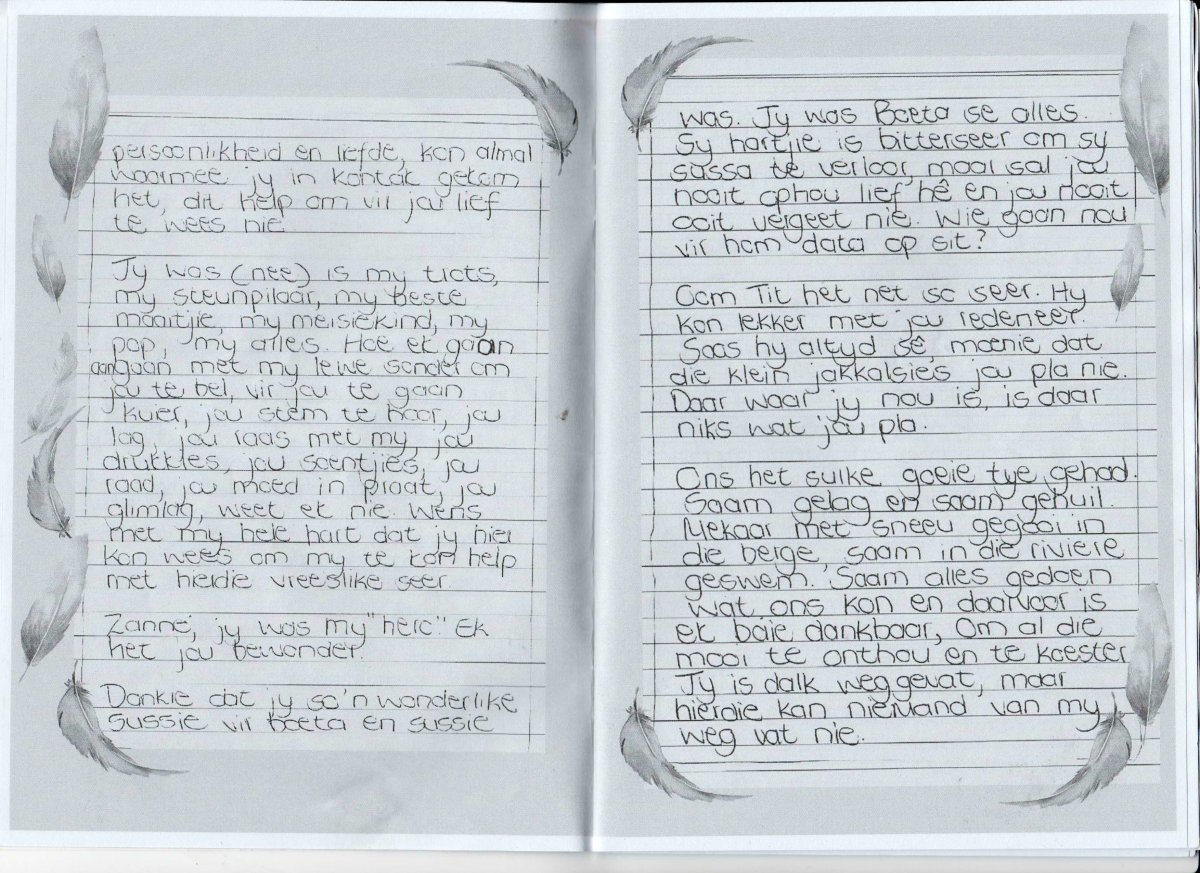 persoonlikheid en liefde, kan almal
waarmee jy in kontak gekom
het, dit help om vir jou lief
te wees nie
Jy was (nee) is my trots,
my steunpilaar, my beste
maatjie, my meisiekind, my
pop, my alles. Hoe ek gaan
aangaan met my lewe sonder om
jou te bel, vir jou te gaan
kuier, jou stem te hoor, jou
lag, jou raas met my, jou
drukkies, jou soentjies, jou
raad, jou moed in praat, jou
glimlag, weet ek nie. Wens
met my hele hart dat jy hier
kon wees om my te kom help
met hierdie vreeslike seer.
Zanné, jy was my "hero". Ek
het jou bewonder.
Dankie dat jy so 'n wonderlike
sussie vir boeta en sussie
was. Jy was Boeta se alles.
Sy hartjie is bitterseer om sy
sussa te verloor, maar sal jou
nooit ophou lief hê en jou nooit
ooit vergeet nie. Wie gaan nou
vir hom data op sit?
Oom Tit het net so seer. Hy
kon lekker met jou redeneer.
Soos hy altyd sê, moenie dat
die klein jakkalsies jou pla nie.
Daar waar jy nou is, is daar
niks wat jou pla.
Ons het sulke goeie tye gehad.
Saam gelag en saam gehuil.
Mekaar met sneeu gegooi in
die berge, saam in die riviere
geswem. Saam alles gedoen
wat ons kon en daarvoor is
ek baie dankbaar, Om al die
mooi te onthou en te koester
Jy is dalk weggevat, maar
hierdie kan niemand van my
weg vat nie.